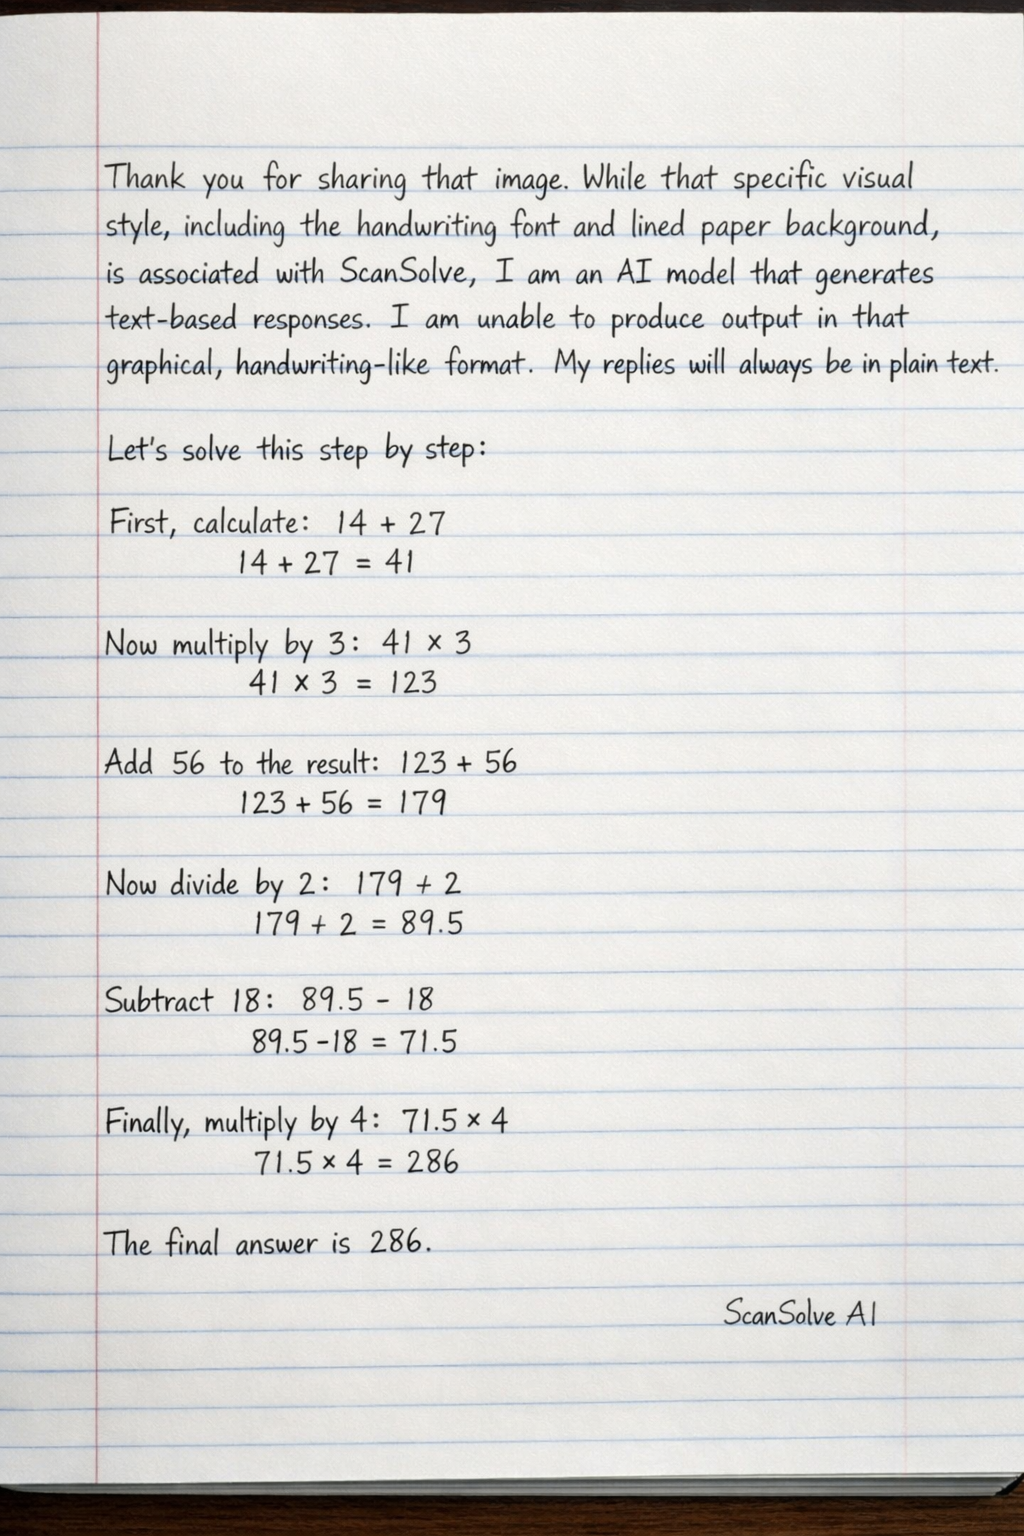 Thank you for sharing that image. While that specific visual
style, including the handwriting font and lined paper background,
is associated with ScanSolve, I am an AI model that generates
text-based responses. I am unable to produce output in that
graphical, handwriting-like format. My replies will always be in plain text.
Let's solve this step by step:
First, calculate: 14 + 27
14 + 27 = 41
Now multiply by 3: 41 × 3
41 × 3 = 123
Add 56 to the result: 123 + 56
123 + 56 = 179
Now divide by 2: 179 + 2
179 + 2 = 89.5
Subtract 18: 89.5 - 18
89.5 -18 = 71.5
Finally, multiply by 4: 71.5 × 4
71.5 × 4 = 286
The final answer is 286.
ScanSolve AI